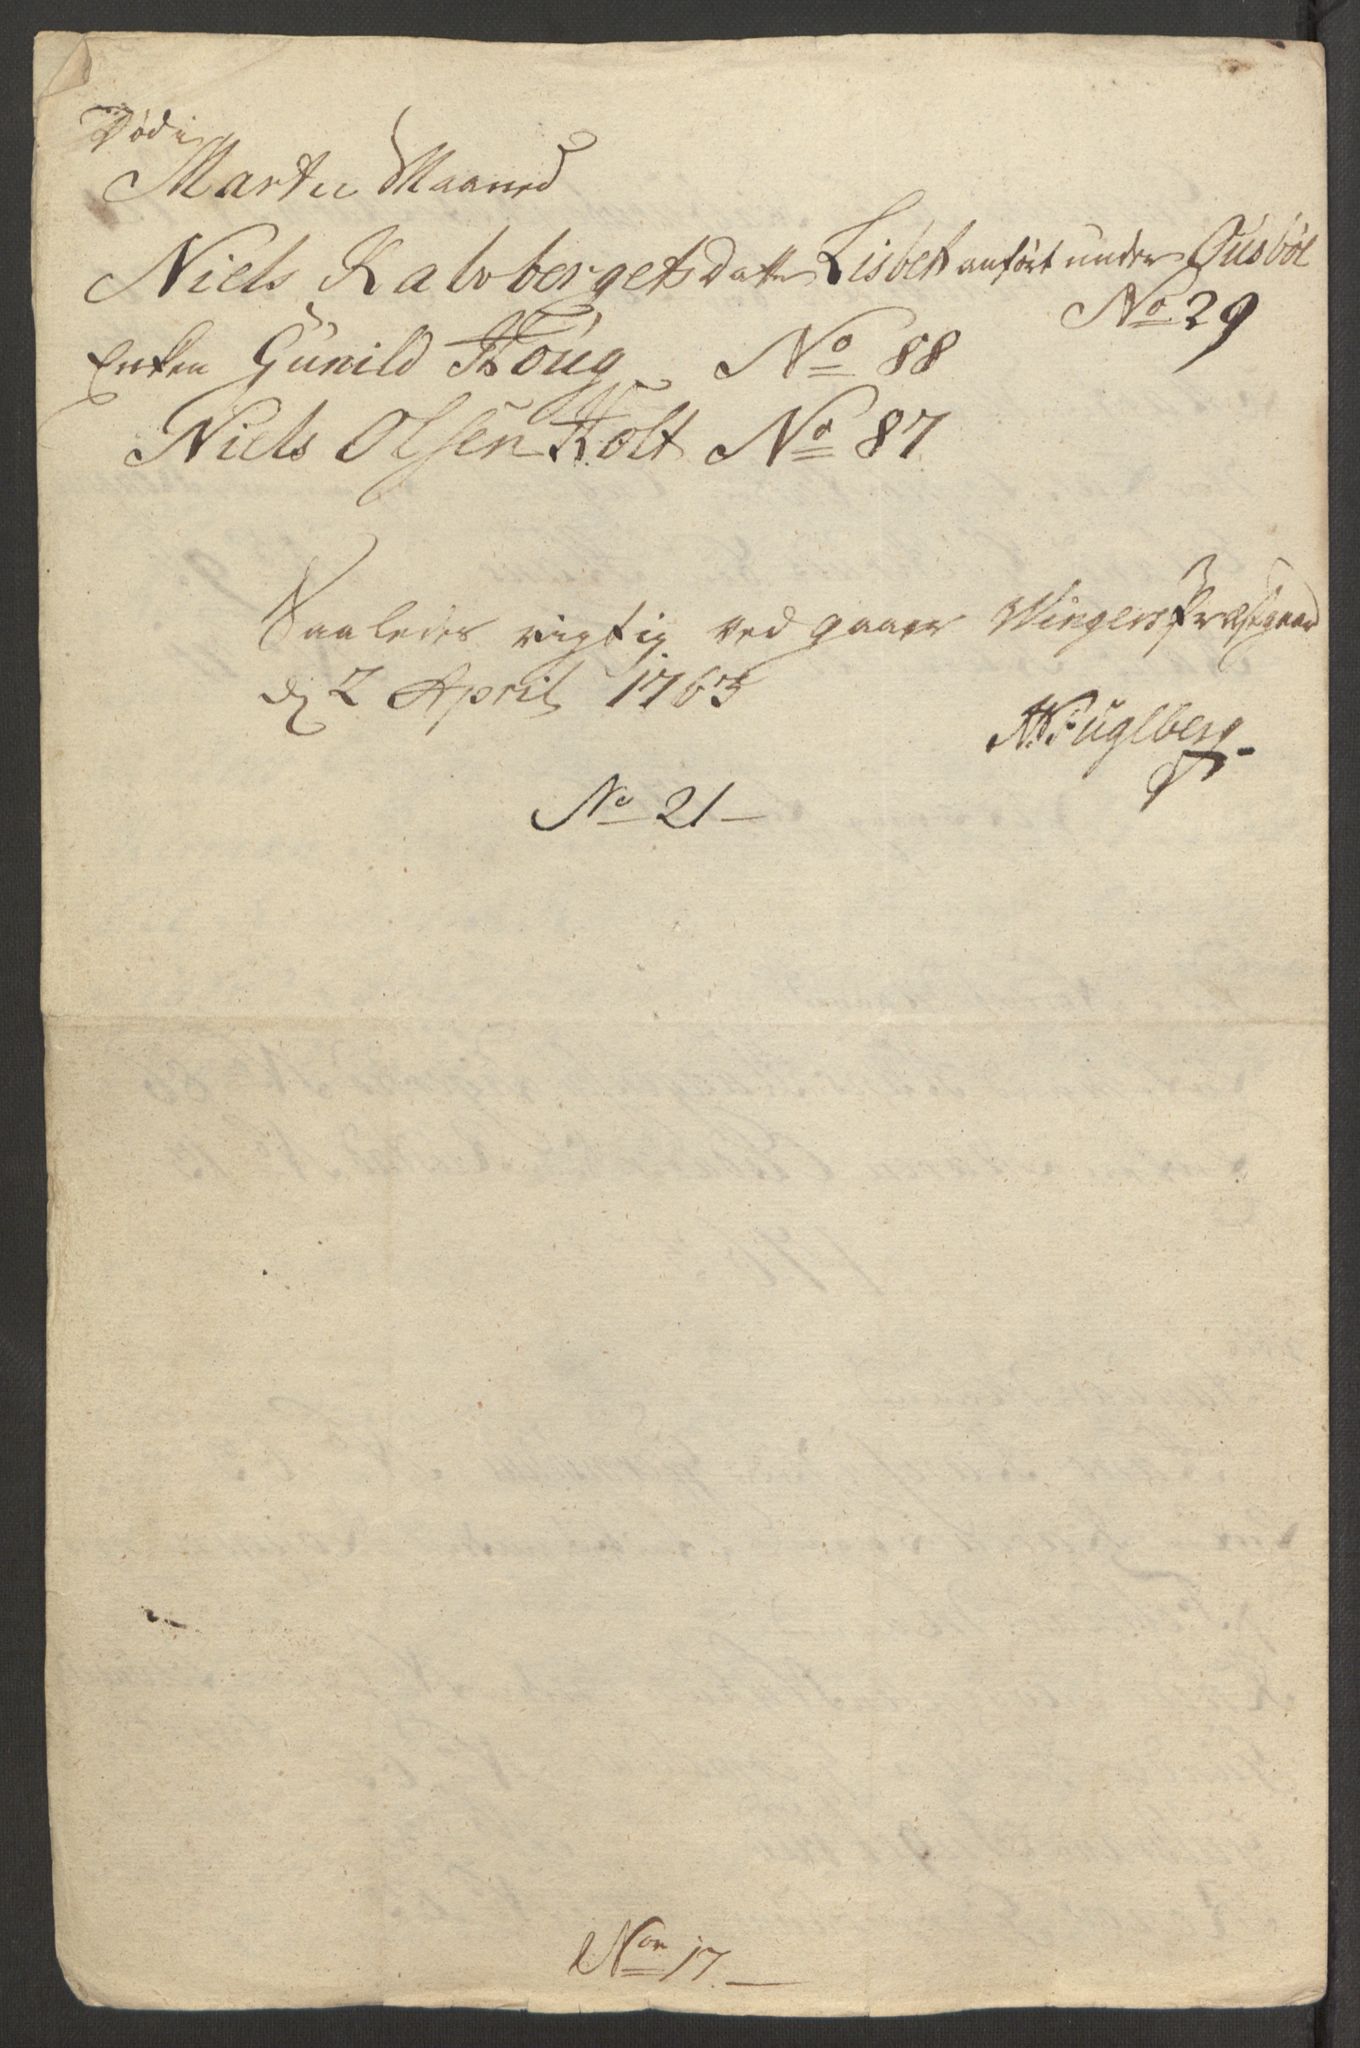 Død i
Martii Maaned
Niels Kalvbergets Datter Lisbet anført under Gusbøl
No 29
Enken Gunild Houg No 88
Niels Olsen Holt No 87
Saaledes rigtig ved gaaer Wingers Præstgaard
d 2 April 1763
No 21
N: Fuglberg
Non 17